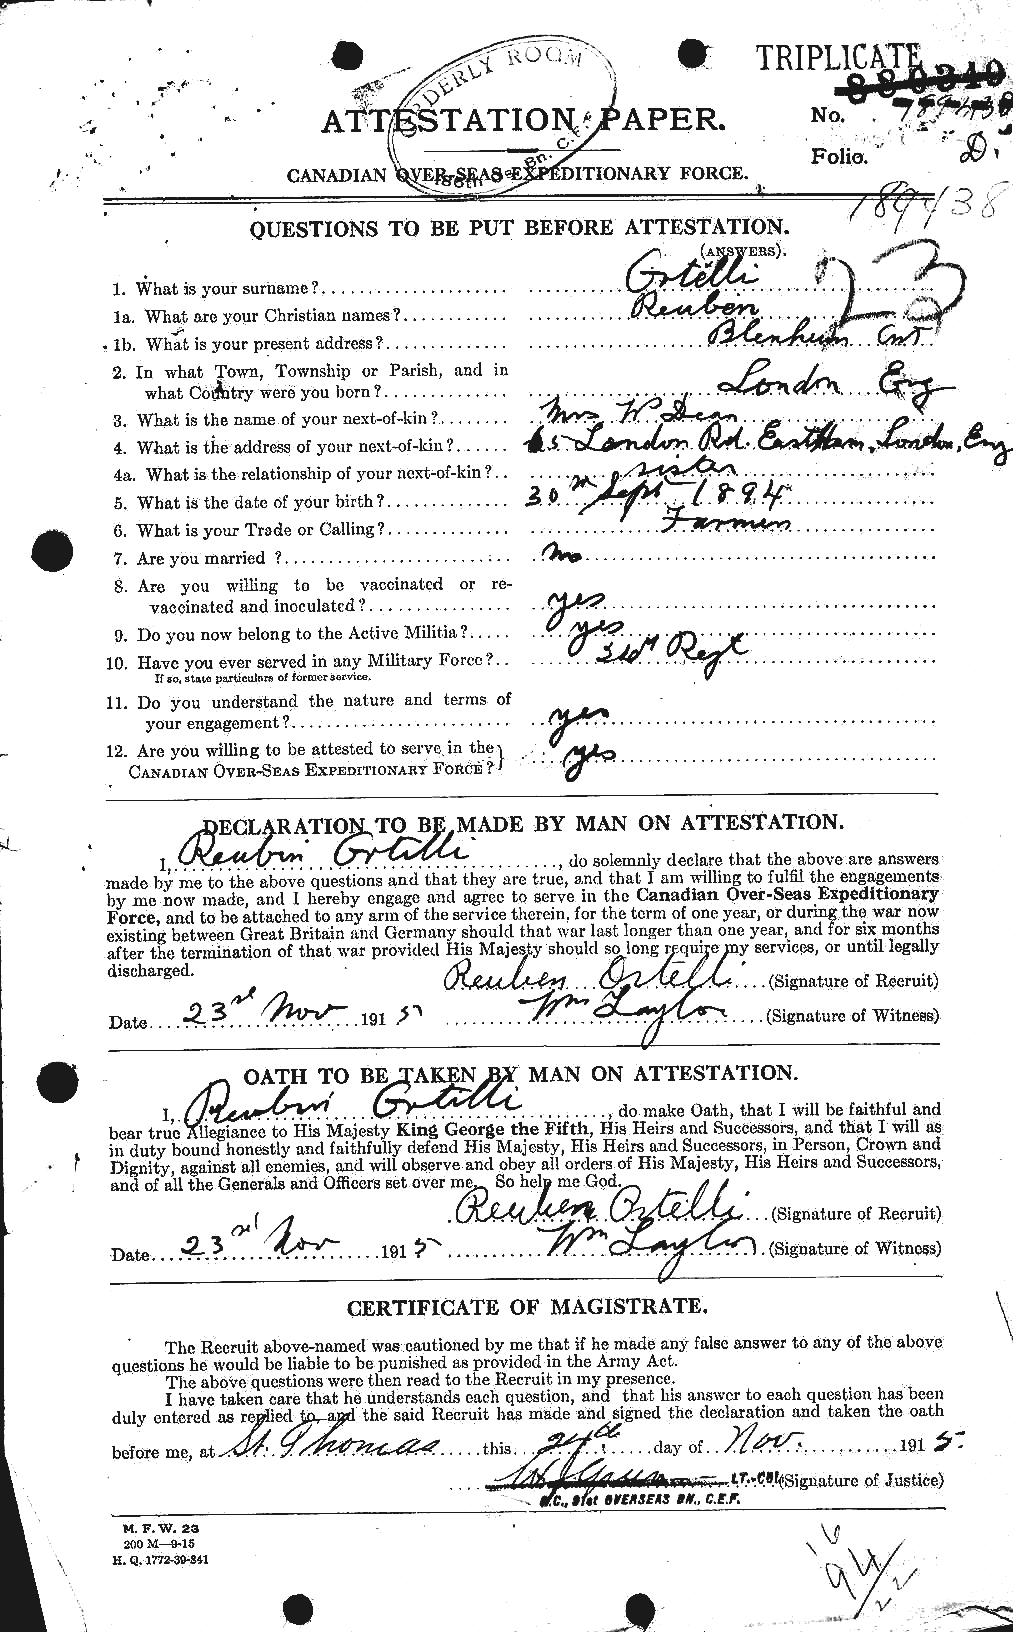 TRIPLICATE
ORDERLY ROOM
ATTESTATION PAPER.
No. 189438
Folio. D.
CANADIAN OVER-SEAS EXPEDITIONARY FORCE.
189438
QUESTIONS TO BE PUT BEFORE ATTESTATION.
(ANSWERS).
23
1. What is your surname? Ortelli
1a. What are your Christian names? Reuben
1b. What is your present address? Blenheim Ont
2. In what Town, Township or Parish, and in
what Country were you born? London Eng
3. What is the name of your next-of-kin? Mrs W Dean
4. What is the address of your next-of-kin? London Rd. East Ham, London, Eng
4a. What is the relationship of your next-of-kin? sister
5. What is the date of your birth? 30th Sept 1894
6. What is your Trade or Calling? Farmer
7. Are you married ? no
8. Are you willing to be vaccinated or re-
vaccinated and inoculated? yes
9. Do you now belong to the Active Militia? yes
10. Have you ever served in any Military Force? Regt
If so, state particulars of former service.
11. Do you understand the nature and terms of
your engagement? yes
12. Are you willing to be attested to serve in the
CANADIAN OVER-SEAS EXPEDITIONARY FORCE? yes
DECLARATION TO BE MADE BY MAN ON ATTESTATION.
I, Reubin Ortelli, do solemnly declare that the above are answers
made by me to the above questions and that they are true, and that I am willing to fulfil the engagements
by me now made, and I hereby engage and agree to serve in the Canadian Over-Seas Expeditionary
Force, and to be attached to any arm of the service therein, for the term of one year, or during the war now
existing between Great Britain and Germany should that war last longer than one year, and for six months
after the termination of that war provided His Majesty should so long require my services, or until legally
discharged.
Reuben Ortelli (Signature of Recruit)
Date 23rd Nov 1915 Wm Taylor (Signature of Witness)
OATH TO BE TAKEN BY MAN ON ATTESTATION.
I, Reubin Ortelli, do make Oath, that I will be faithful and
bear true Allegiance to His Majesty King George the Fifth, His Heirs and Successors, and that I will as
in duty bound honestly and faithfully defend His Majesty, His Heirs and Successors, in Person, Crown and
Dignity, against all enemies, and will observe and obey all orders of His Majesty, His Heirs and Successors,
and of all the Generals and Officers set over me. So help me God.
Reuben Ortelli (Signature of Recruit)
Date 23rd Nov 1915 Wm Taylor (Signature of Witness)
CERTIFICATE OF MAGISTRATE.
The Recruit above-named was cautioned by me that if he made any false answer to any of the above
questions he would be liable to be punished as provided in the Army Act.
The above questions were then read to the Recruit in my presence.
I have taken care that he understands each question, and that his answer to each question has been
duly entered as replied to, and the said Recruit has made and signed the declaration and taken the oath
before me, at St. Thomas this 24th day of Nov. 1915.
LT.-COL. (Signature of Justice)
O.C., 91st OVERSEAS BN., C.E.F.
M. F. W. 23
200 M—9-15
H. Q. 1772-39-841
16
94/22